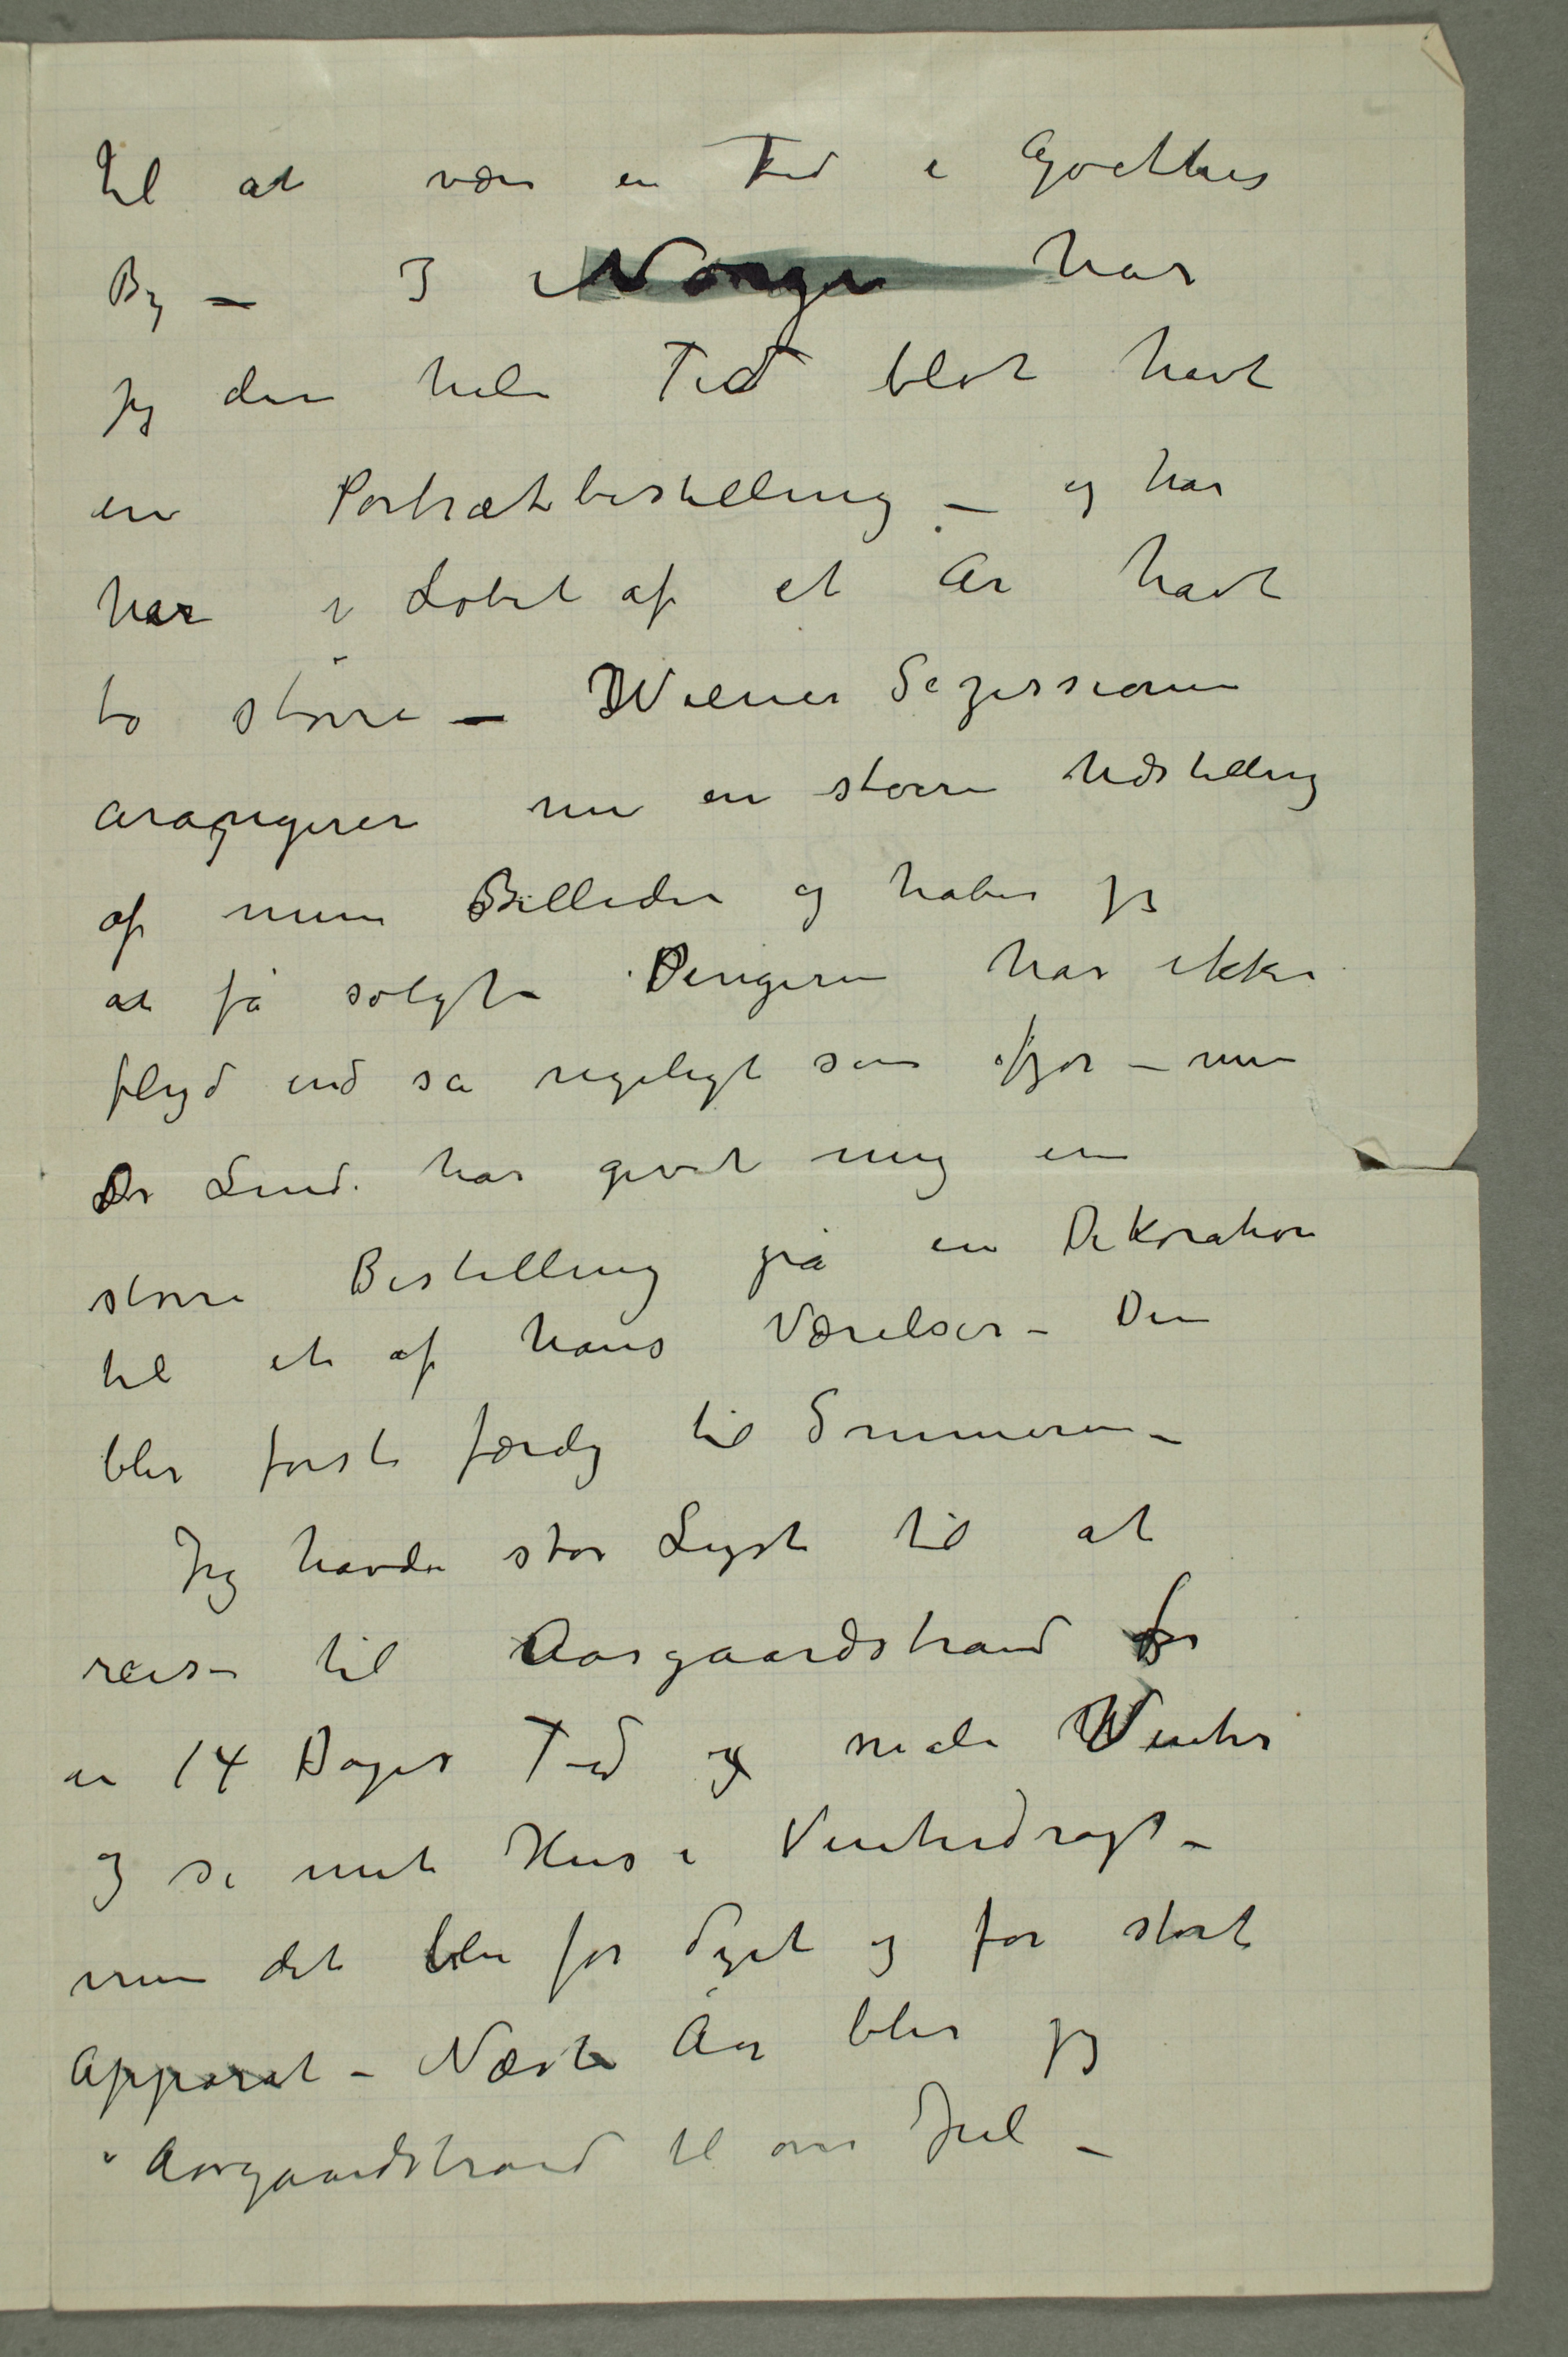 til at være en Tid i Goethes
By – I Norge har
jeg den hele Tid blot havt
en Portrætbestilling – og har
har i Løbet af et År havt
to større – Wiener Sezessionen
arangerer nu en større Udstilling
af mine Billeder og håber jeg
at få solgt – Pengene har ikke
flyd ind så rigeligt som ifjor – men
Dr Lind. har givet mig en
større Bestilling på en Dekoration
til et af hans Værelser – Den
blir først færdig til Sommeren –
Jeg havde stor Lyst til at
reise til Aasgaardstrand for
en 14 Dages Tid og male Winter
og se mit Hus i Vinterdragt –
men det blir for dyrt og for stort
Apparat – Næste År blir jeg
i Aasgaardstrand til over Jul –